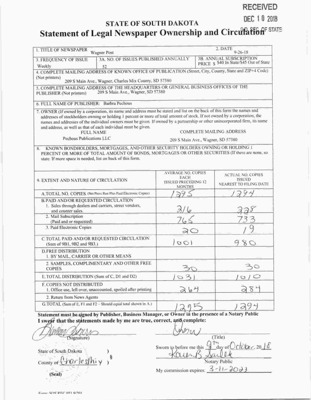 RECEIVED
DEC 10 2018
SD SEC OF STATE
STATE OF SOUTH DAKOTA
Statement of Legal Newspaper Ownership and Circulation
1. TITLE OF NEWSPAPER Wagner Post
2. DATE 9-26-18
3. FREQUENCY OF ISSUE Weekly
3A. NO. OF ISSUES PUBLISHED ANNUALLY 52
3B. ANNUAL SUBSCRIPTION PRICE $ $40 In State/$45 Out of State
4. COMPLETE MAILING ADDRESS OF KNOWN OFFICE OF PUBLICATION (Street, City, County, State and ZIP+4 Code) (Not printers)
209 S Main Ave., Wagner, Charles Mix County, SD 57380
5. COMPLETE MAILING ADDRESS OF THE HEADQUARTERS OR GENERAL BUSINESS OFFICES OF THE PUBLISHER (Not printers) 209 S Main Ave., Wagner, SD 57380
6. FULL NAME OF PUBLISHER: Barbra Pechous
7. OWNER (If owned by a corporation, its name and address must be stated and also on the back of this form the names and addresses of stockholders owning or holding 1 percent or more of total amount of stock. If not owned by a corporation, the names and addresses of the individual owners must be given. If owned by a partnership or other unincorporated firm, its name and address, as well as that of each individual must be given.
FULL NAME
COMPLETE MAILING ADDRESS
Pechous Publications LLC
209 S Main Ave., Wagner, SD 57380
8. KNOWN BONDHOLDERS, MORTGAGES, AND OTHER SECURITY HOLDERS OWNING OR HOLDING 1 PERCENT OR MORE OF TOTAL AMOUNT OF BONDS, MORTGAGES OR OTHER SECURITIES (If there are none, so state. If more space is needed, list on back of this form.
9. EXTENT AND NATURE OF CIRCULATION
AVERAGE NO. COPIES EACH ISSUED PRECEDING 12 MONTHS
ACTUAL NO. COPIES ISSUED NEAREST TO FILING DATE
A. TOTAL NO. COPIES 1295 1294
B. PAID AND/OR REQUESTED CIRCULATION
1. Sales through dealers and carriers, street vendors, and counter sales. 216 228
2. Mail Subscription (Paid and or requested) 765 733
3. Paid Electronic Copies 20 19
C. TOTAL PAID AND/OR REQUESTED CIRCULATION (Sum of 9B1, 9B2 and 9B3.) 1001 980
D. FREE DISTRIBUTION
1. BY MAIL, CARRIER OR OTHER MEANS
2. SAMPLES, COMPLIMENTARY AND OTHER FREE COPIES 30 30
E. TOTAL DISTRIBUTION (Sum of C, D1 and D2) 1031 1010
F. COPIES NOT DISTRIBUTED
1. Office use, left over, unaccounted, spoiled after printing 264 284
2. Return from News Agents
1295 1294
Statement must be signed by Publisher, Business Manager, or Owner in the presence of a Notary Public
I swear that the statements made by me are true, correct, and complete:
(Signature)
(Title)
State of South Dakota )
County of Charles Mix )
(Seal)
Sworn to before me this 9th day of October 2018
Notary Public
My commission expires: 3-11-2023